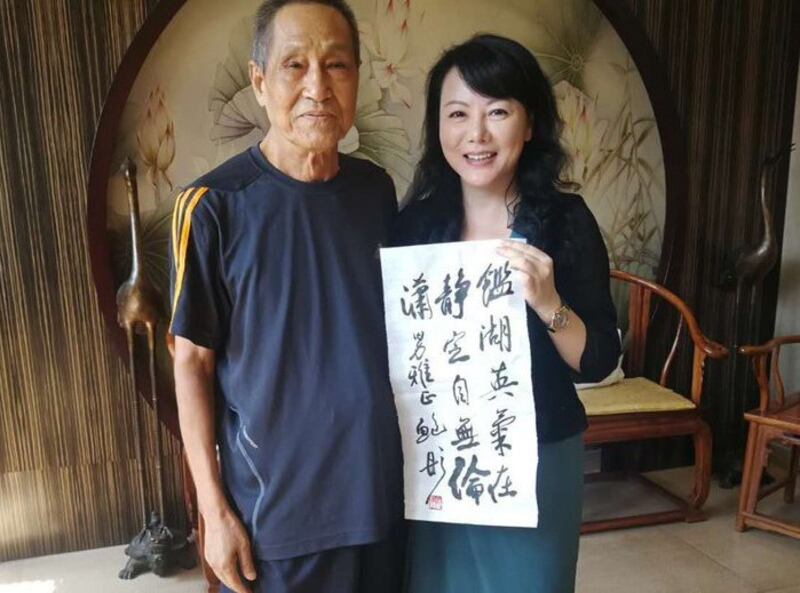 鑑湖英氣在
静定自無倫
瀟男雅正鮑彤